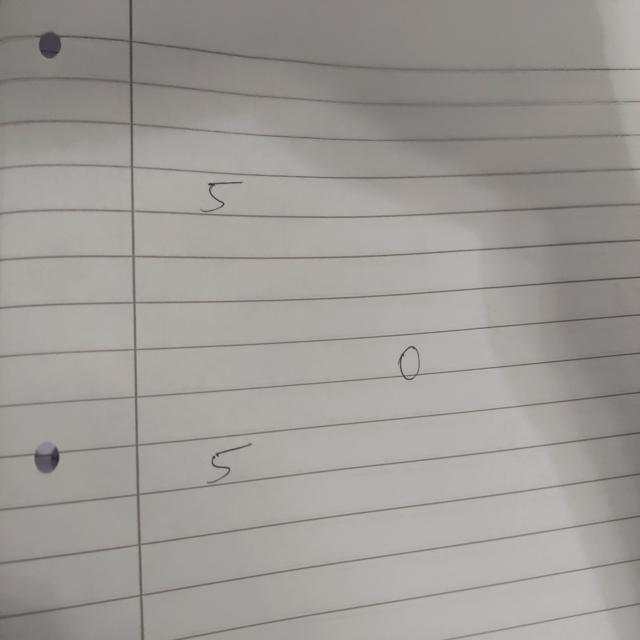 5
0
5